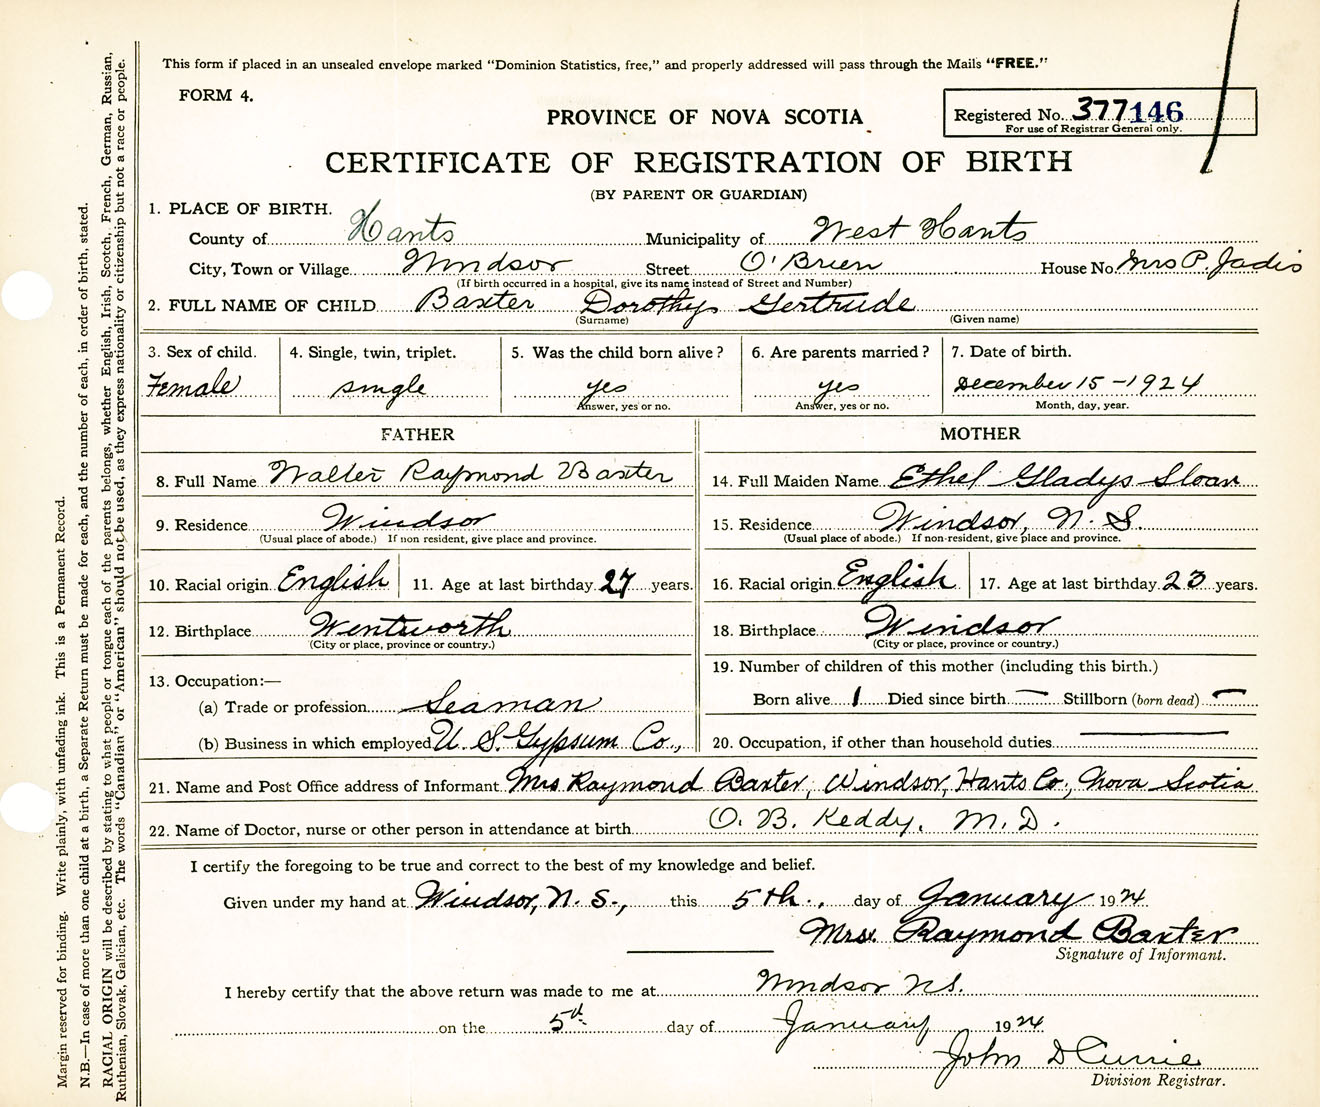 This form if placed in an unsealed envelope marked "Dominion Statistics, free," and properly addressed will pass through the Mails "FREE."
FORM 4.
PROVINCE OF NOVA SCOTIA
Registered No. 377146
For use of Registrar General only.
CERTIFICATE OF REGISTRATION OF BIRTH
(BY PARENT OR GUARDIAN)
1. PLACE OF BIRTH.
County of Hants Municipality of West Hants
City, Town or Village Windsor Street O'Brien House No. Mrs P. Jadis
(If birth occurred in a hospital, give its name instead of Street and Number)
2. FULL NAME OF CHILD Baxter Dorothy Gertrude
(Surname) (Given name)
3. Sex of child. 4. Single, twin, triplet. 5. Was the child born alive? 6. Are parents married? 7. Date of birth.
Female single yes yes December 15-1924
Answer, yes or no. Answer, yes or no. Month, day, year.
FATHER MOTHER
8. Full Name Walter Raymond Baxter 14. Full Maiden Name Ethel Gladys Sloan
9. Residence Windsor 15. Residence Windsor, N. S.
(Usual place of abode.) If non resident, give place and province. (Usual place of abode.) If non-resident, give place and province.
10. Racial origin English 11. Age at last birthday 27 years. 16. Racial origin English 17. Age at last birthday 23 years.
12. Birthplace Wentworth 18. Birthplace Windsor
(City or place, province or country.) (City or place, province or country.)
13. Occupation:— 19. Number of children of this mother (including this birth.)
(a) Trade or profession Seaman Born alive 1 Died since birth — Stillborn (born dead) —
(b) Business in which employed U. S. Gypsum Co., 20. Occupation, if other than household duties —
21. Name and Post Office address of Informant Mrs Raymond Baxter, Windsor, Hants Co., Nova Scotia
22. Name of Doctor, nurse or other person in attendance at birth O. B. Keddy, M. D.
I certify the foregoing to be true and correct to the best of my knowledge and belief.
Given under my hand at Windsor, N. S., this 5th., day of January 1924
Mrs. Raymond Baxter
Signature of Informant.
I hereby certify that the above return was made to me at Windsor NS.
on the 5th day of January 1924
John D Currie
Division Registrar.
Margin reserved for binding. Write plainly, with unfading ink. This is a Permanent Record.
N.B.—In case of more than one child at a birth, a Separate Return must be made for each, and the number of each, in order of birth, stated.
RACIAL ORIGIN will be described by stating to what people or tongue each of the parents belongs, whether English, Irish, Scotch, French, German, Russian,
Ruthenian, Slovak, Galician, etc. The words "Canadian" or "American" should not be used, as they express nationality or citizenship but not a race or people.